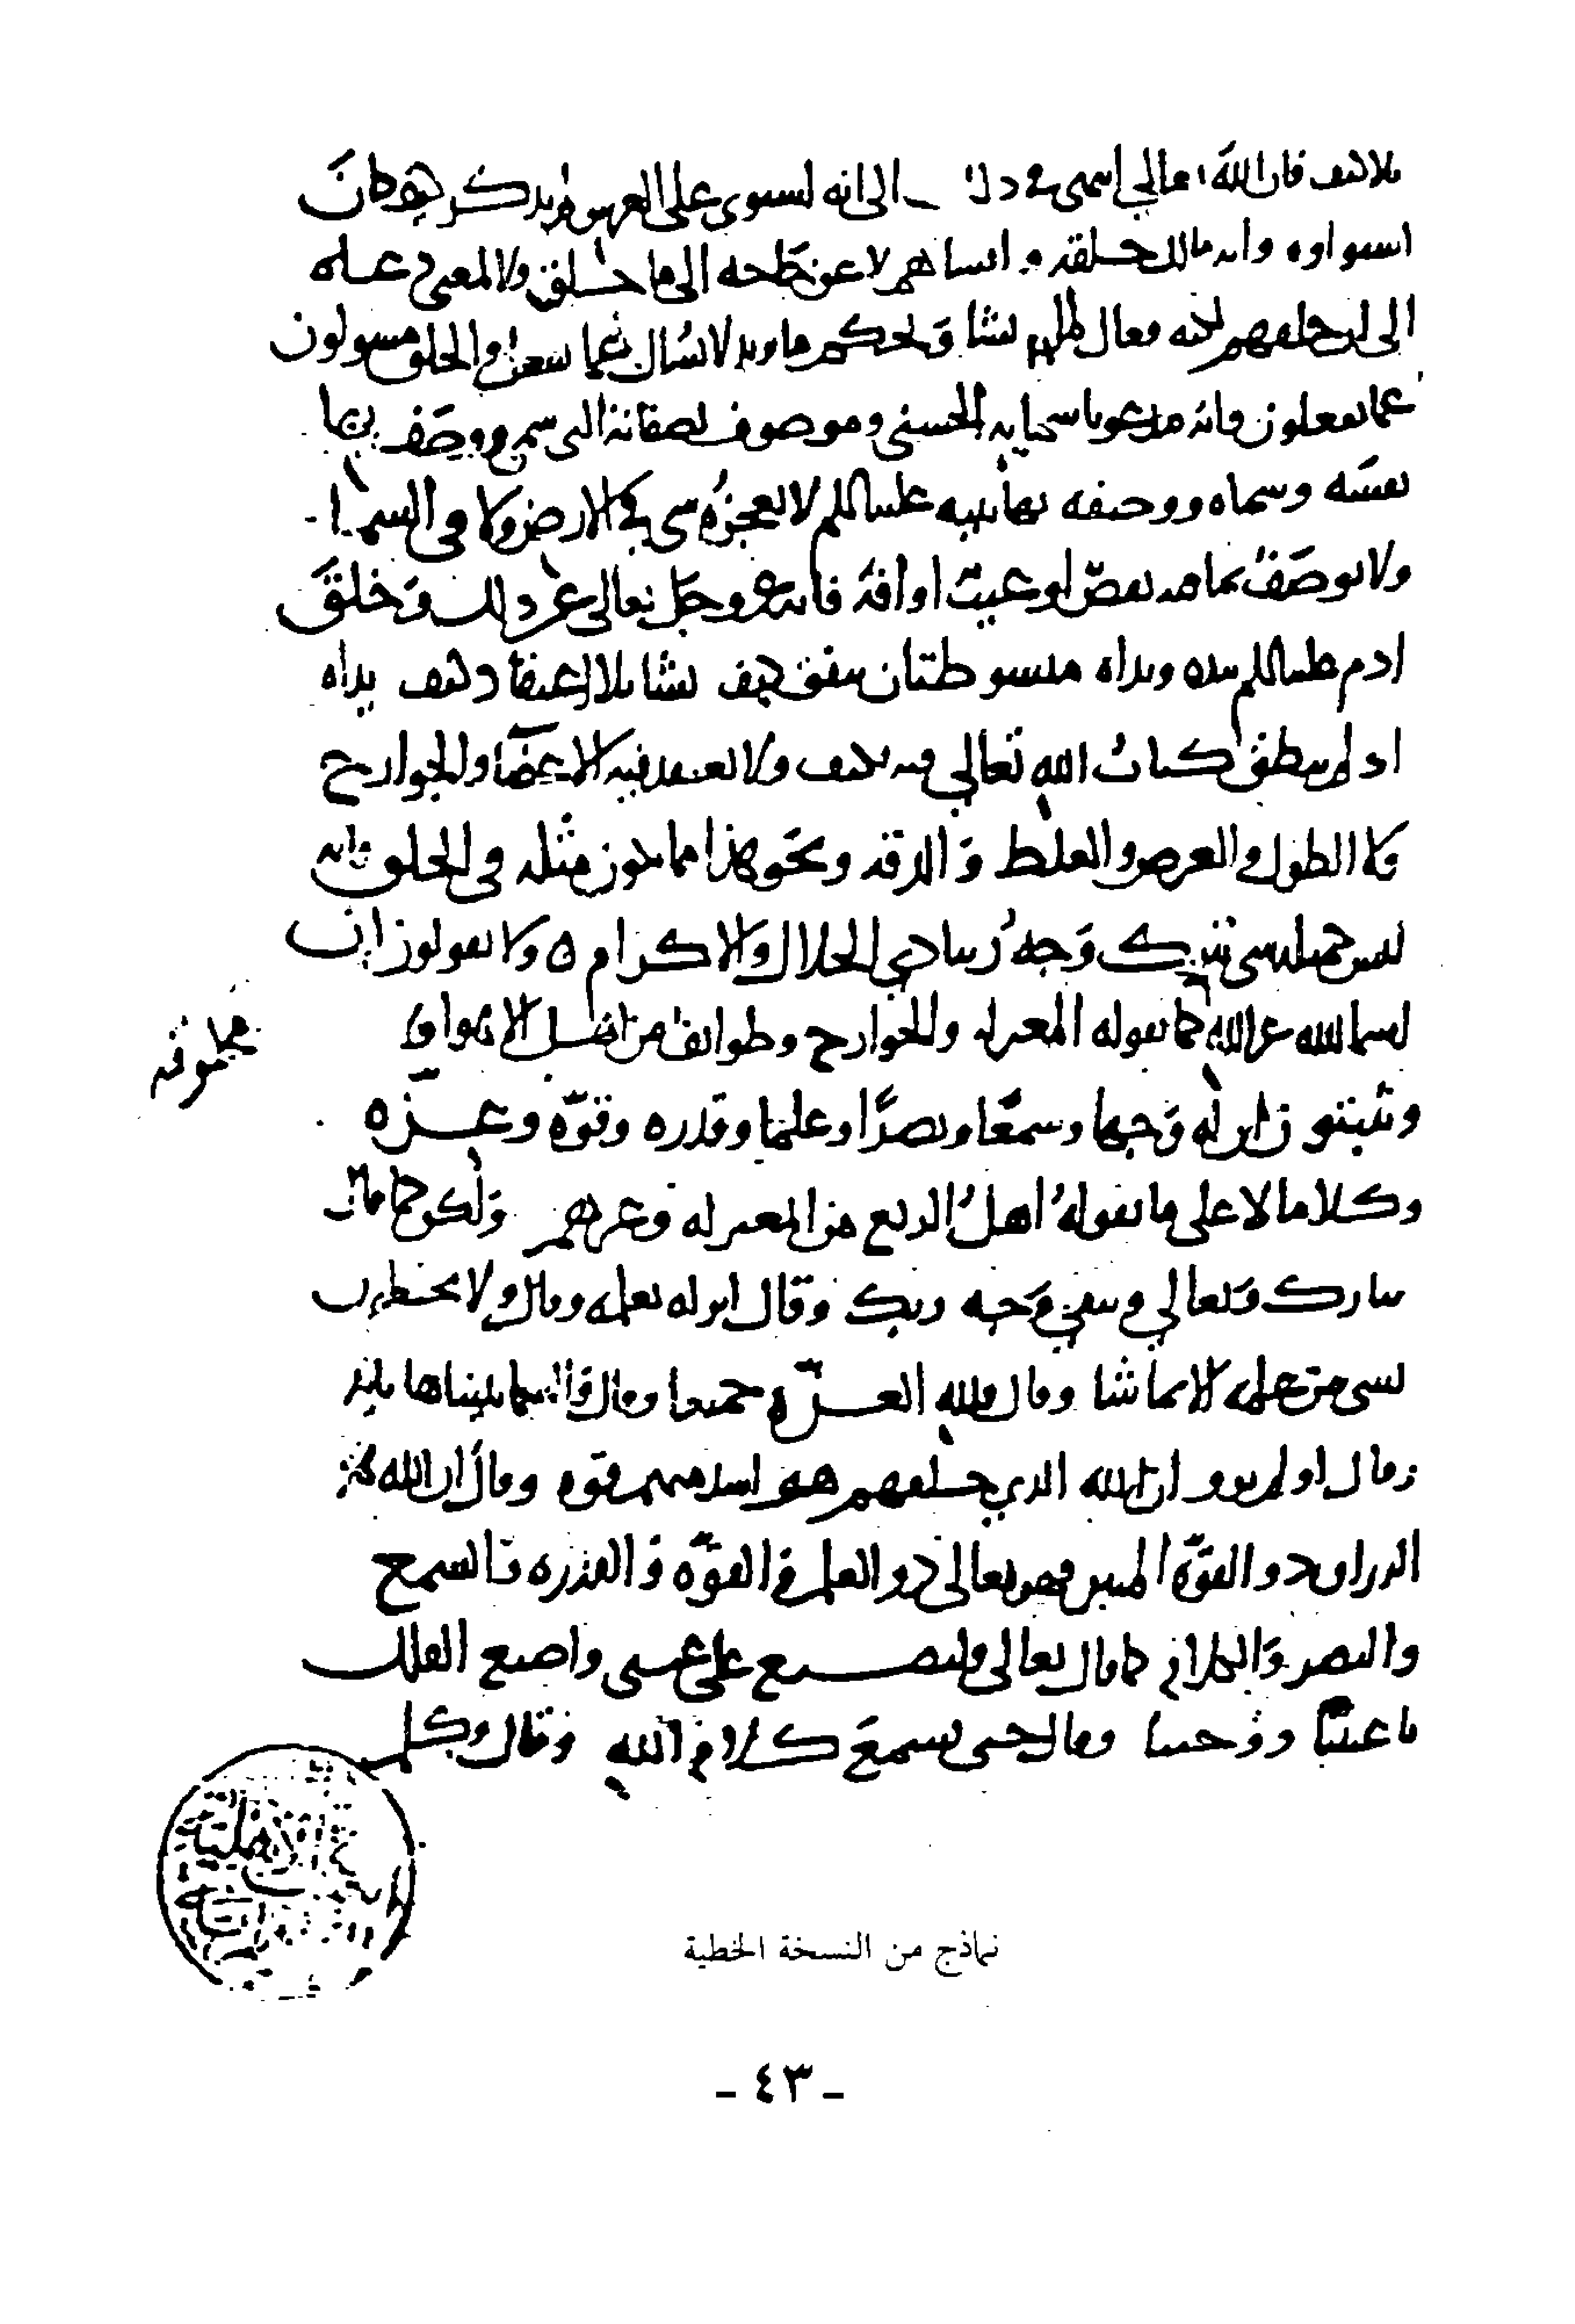 بلا كيف فان الله تعالى انتهى في ذلك الى انه استوى على العرش ولم يذكر كيف كان
استواوه وانه مالك خلقه وانشاهم لا عن حاجه الى ما خلق ولا لمعنى دعاه
الى ان خلقهم لكنه فعال لما يشا ويحكم ما يريد لا يسأل عما يفعل والخلق مسولون
عما يفعلون وانه مدعو باسمايه الحسنى وموصوف بصفاته التي سمى ووصف بها
نفسه وسماه ووصفه بها نبيه عليه السلم لا يعجزه شي في الارض ولا في السما
ولا يوصف بما فيه نقص او عيب او افة فانه عز وجل تعالى عن ذلك وخلق
ادم عليه السلم بيده ويداه مبسوطتان ينفق كيف يشا بلا اعتقاد كيف يداه
اذ لم ينطق كتاب الله تعالى فيه بكيف ولا يعتقد فيه الاعضا والجوارح
ولا الطول والعرض والغلظ والدقه ونحو هذا مما يكون مثله في الخلق وانه
ليس كمثله شي تبرك وجه ربنا ذي الجلال والاكرام ه ولا يقولون ان
اسما الله غير الله كما يقوله المعتزله والخوارج وطوايف من اهل الاهوا
مخلوقه
ويثبتون ان له وجها وسمعا وبصرا وعلما وقدره وقوة وعزه
وكلاما لا على ما يقوله اهل الزيغ من المعتزله وغيرهم ولكن كما قال
تبارك وتعالى ويبقى وجه ربك وقال انزله بعلمه وقال ولا يحيطون
بشي من علمه الا بما شا وقال فلله العزة جميعا وقال والسما بنيناها بايد
وقال اولم يروا ان الله الذي خلقهم هو اشد منهم قوه وقال ان الله هو
الرزاق ذو القوة المتين فهو تعالى ذو العلم والقوة والقدره والسمع
والبصر والكلام كما قال تعالى ولتصنع على عيني واصنع الفلك
باعيننا ووحينا وقال حتى يسمع كلام الله وقال وكلم
نماذج من النسخة الخطية
- ٤٣ -